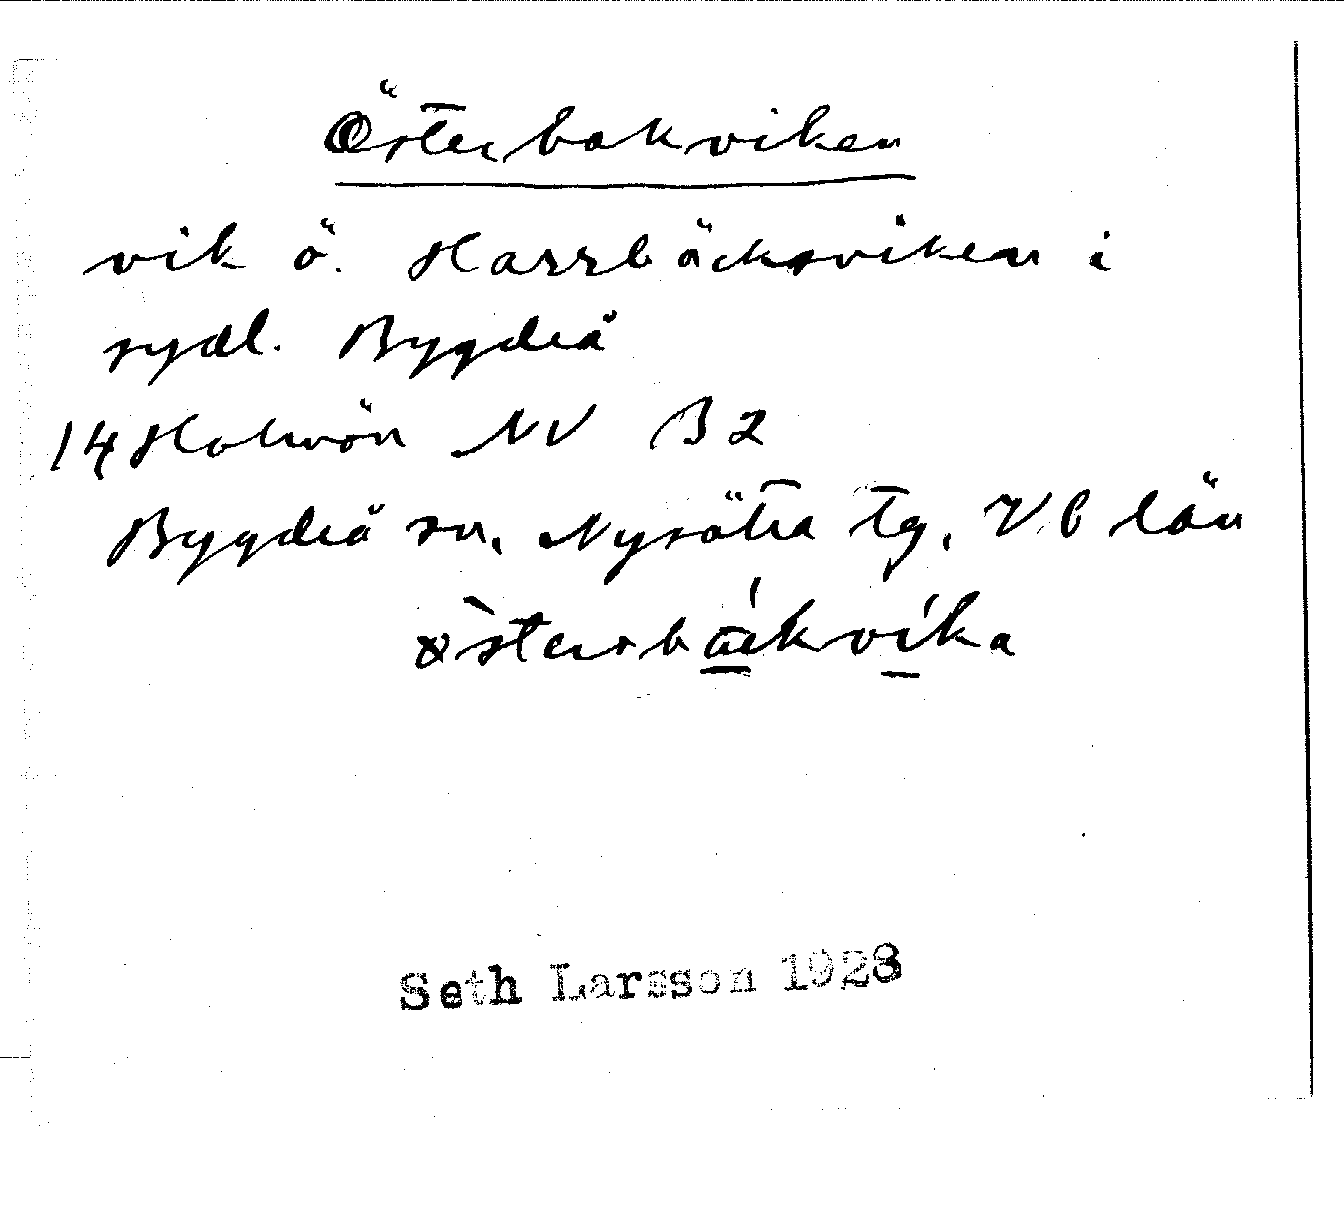 Österbakviken
vik ö. Harrbäcksviken i
sydl. Bygdeå
14 Holmön NV B2
Bygdeå sn, Nysätra tg, Vb län
österbakvika
Seth Larsson 1928